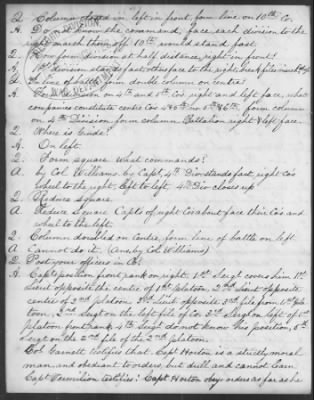 Q. Column closed in left in front, form line on 10th Co.
A. Do not know the command, face each division to the
right march them off 10th would stand fast.
Q. Form division at half distance, right in front?
A. 1st division stands fast others face to the right, break files
Q. In line of battle form double column on centre?
A. Form division on 4th and 5th Co's right and left face, what
companies constitute centre Co's 4 & 5th or 5th & 6th form column
on 4th Division form column Battalion right & left face.
Q. Where is Guide?
A. On left.
Q. Form square what commands?
A. by Col Williams, by Capt, 4th Div stands fast right Co's
wheel to the right, left to left 4th Div closes up
Q. Reduce square.
A. Reduce Square Capts of right Co's about face their Co's and
wheel to the left.
Q. Column doubled on Centre, form line of battle on left.
A. Cannot do it. (Ans, by Col Williams)
Q. Post your officers in Co?
A. Capts position front rank on right, 1st Sergt covers him 1st
Lieut opposite the centre of 1st platoon, 2nd Lieut opposite
centre of 2nd platoon, 3rd Lieut opposite 3rd file from 1st Pla
toon, 2nd Sergt on the left file of Co. 3rd Sergt on left of 1st
platoon front rank, 4th Sergt do not know his position, 5th
Sergt on the 2nd file of the 2nd platoon.
Col Garnett testifies that Capt Horton is a strictly moral
man, and obedient to orders, but dull and cannot learn
Capt Vermilion testifies: Capt Horton obeys orders as far as he